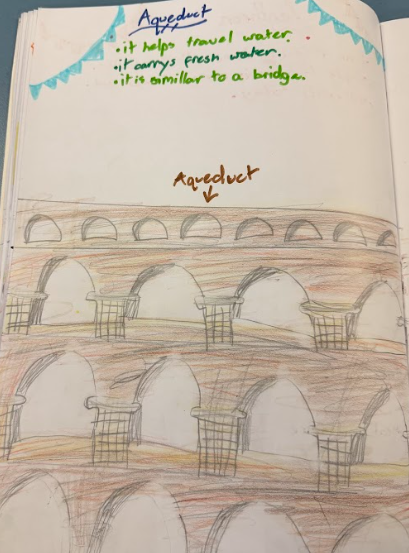 Aqueduct
• it helps travel water
• it carrys fresh water.
• it is simillar to a bridge.
Aqueduct